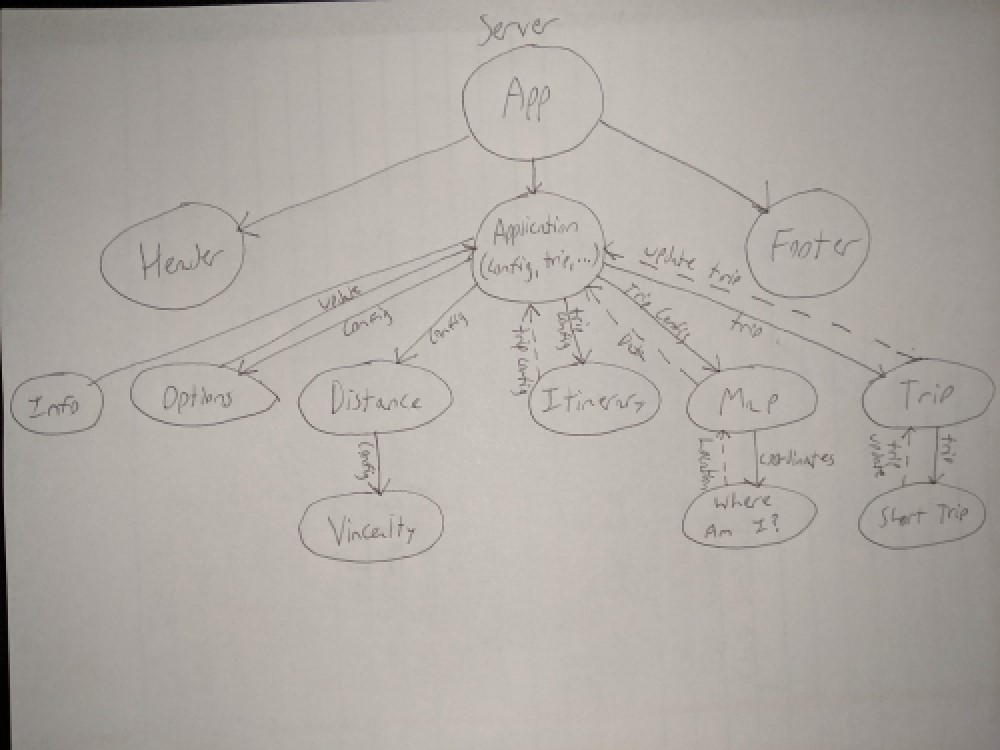 Server
App
Header
Application
(config, trip, ...)
Footer
update trip
update
config
config
trip config
trip
config
Trip Config
Data
trip
Info
Options
Distance
Itinerary
Map
Trip
config
Location
coordinates
trip
update
trip
Where
Am I?
Short Trip